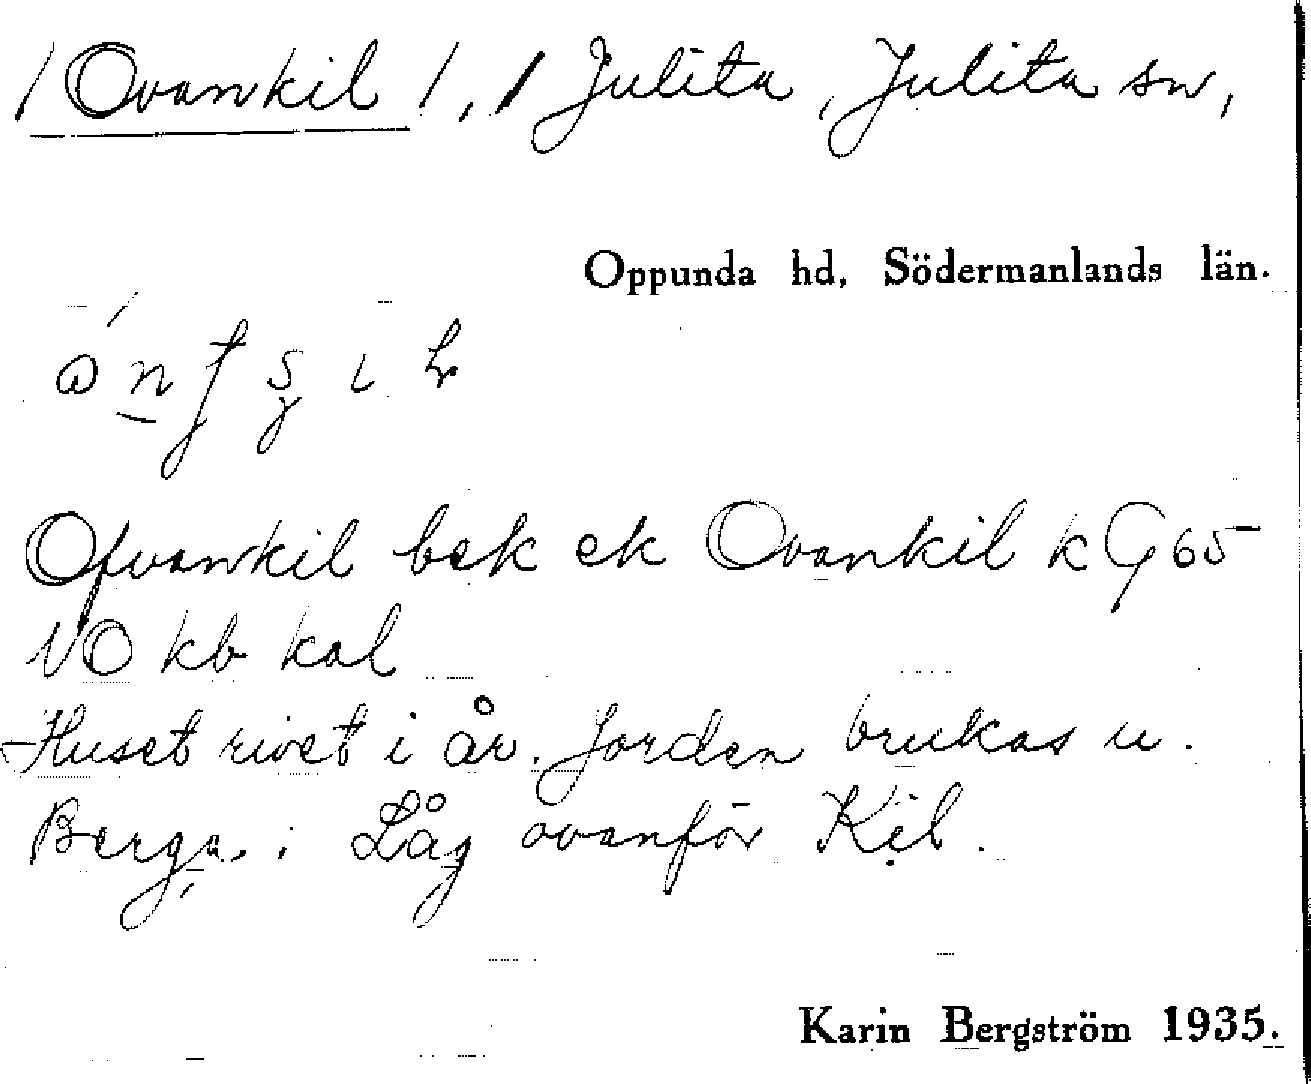 / Ovankil /, / Julita, Julita sn,
Oppunda hd, Södermanlands län.
Ofvankil bek ek Ovankil k G 65
NO kb kal
Huset rivet i år. Jorden brukas u.
Berga. Låg ovanför Kil.
Karin Bergström 1935.